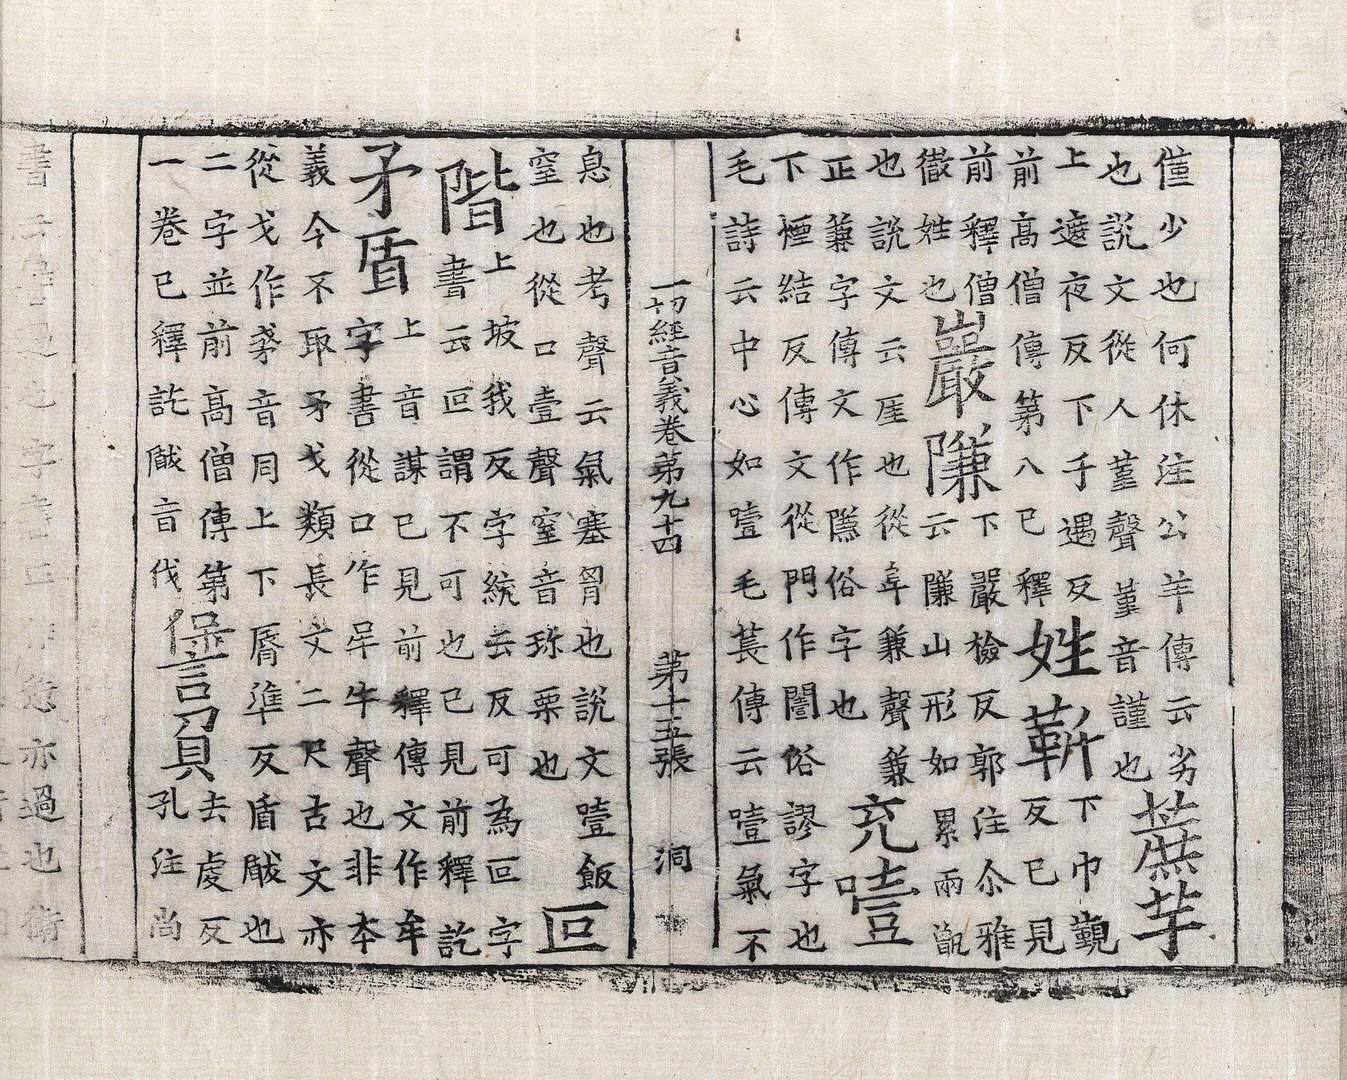 僅少也何休注公羊傳云劣
也說文從人堇聲堇音謹也
蔗芋
上遮夜反下于遇反
前高僧傳第八已釋
姓蔪
下巾覲
反已見
前釋僧
徵姓也
巖隒
下嚴檢反郭注尒雅
云隒山形如累兩甑
也說文云厓也從阜兼聲兼
正蒹字傳文作隒俗字也
充噎
下煙結反傳文從門作闓俗謬字也
毛詩云中心如噎毛萇傳云噎氣不
一切經音義卷第九十四 第十五張 洞
息也考聲云氣塞胷也說文噎飯
窒也從口壹聲窒音珎栗也
叵階
上坡我反字統云反可為叵字
書云叵謂不可也已見前釋訖
矛盾
上音謀已見前釋傳文作牟
字書從口作牛聲也非本
義今不取矛戈類長文二尺古文亦
從戈作音同上下脣準反盾瞂也
二字並前高僧傳第
一卷已釋訖瞂音伐
諐負
去虔反
孔注尚
書云過也字書正作愆亦過也衛